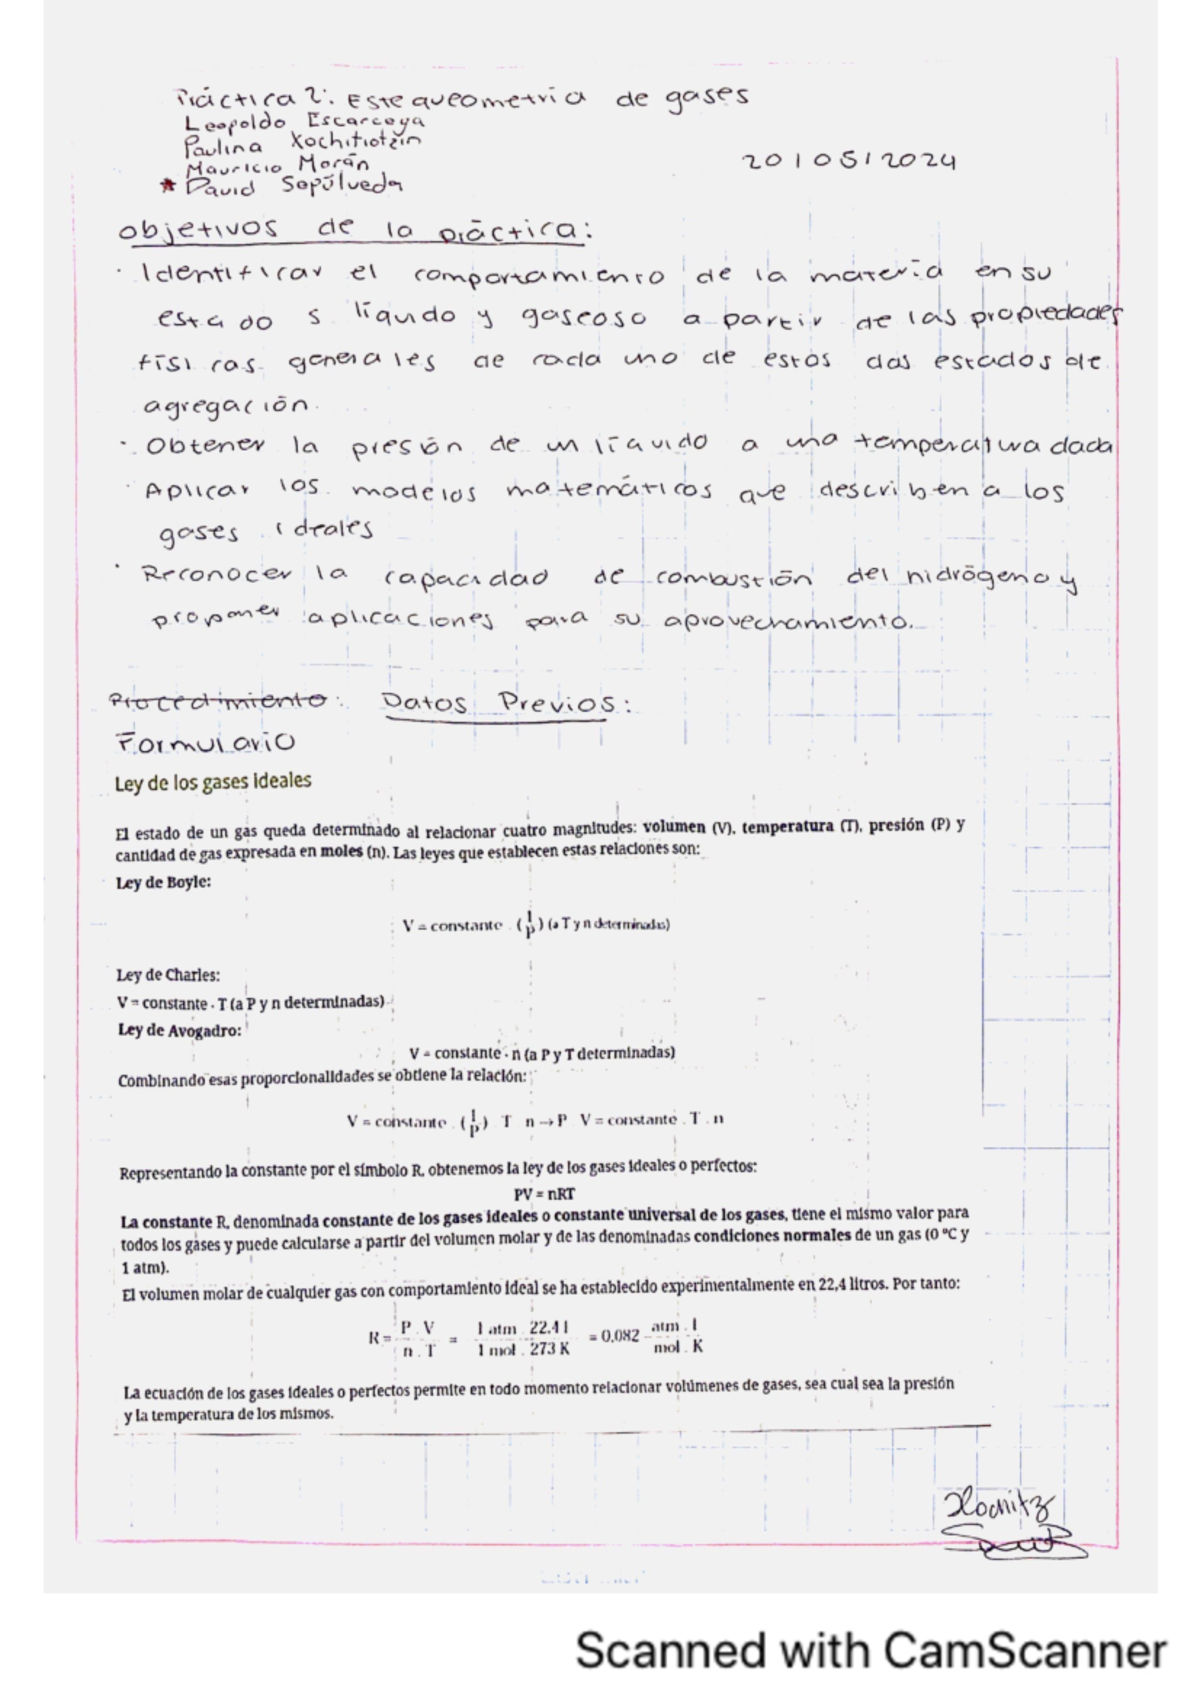 Práctica 2: Estequeometria de gases
Leopoldo Escarcega
Paulina Xochitiotzin
Mauricio Morán
20/05/2024
* David Sepúlveda
Objetivos de la práctica:
· Identificar el comportamiento de la materia en su
estado s líquido y gaseoso a partir de las propiedades
físicas generales de cada uno de estos dos estados de
agregación.
· Obtener la presión de un líquido a una temperatura dada
· Aplicar los modelos matemáticos que describen a los
gases ideales
· Reconocer la capacidad de combustión del hidrógeno y
proponer aplicaciones para su aprovechamiento.
Procedimiento: Datos Previos:
Formulario
Ley de los gases ideales
El estado de un gas queda determinado al relacionar cuatro magnitudes: volumen (V), temperatura (T), presión (P) y
cantidad de gas expresada en moles (n). Las leyes que establecen estas relaciones son:
Ley de Boyle:
V = constante . (1/P) (a T y n determinadas)
Ley de Charles:
V = constante . T (a P y n determinadas)
Ley de Avogadro:
V = constante · n (a P y T determinadas)
Combinando esas proporcionalidades se obtiene la relación:
V = constante . (1/P) T n → P V = constante . T . n
Representando la constante por el símbolo R, obtenemos la ley de los gases ideales o perfectos:
PV = nRT
La constante R, denominada constante de los gases ideales o constante universal de los gases, tiene el mismo valor para
todos los gases y puede calcularse a partir del volumen molar y de las denominadas condiciones normales de un gas (0 ºC y
1 atm).
El volumen molar de cualquier gas con comportamiento ideal se ha establecido experimentalmente en 22,4 litros. Por tanto:
R = P . V / n . T = 1 atm . 22.4 l / 1 mol . 273 K = 0,082 atm . l / mol . K
La ecuación de los gases ideales o perfectos permite en todo momento relacionar volúmenes de gases, sea cual sea la presión
y la temperatura de los mismos.
Scanned with CamScanner